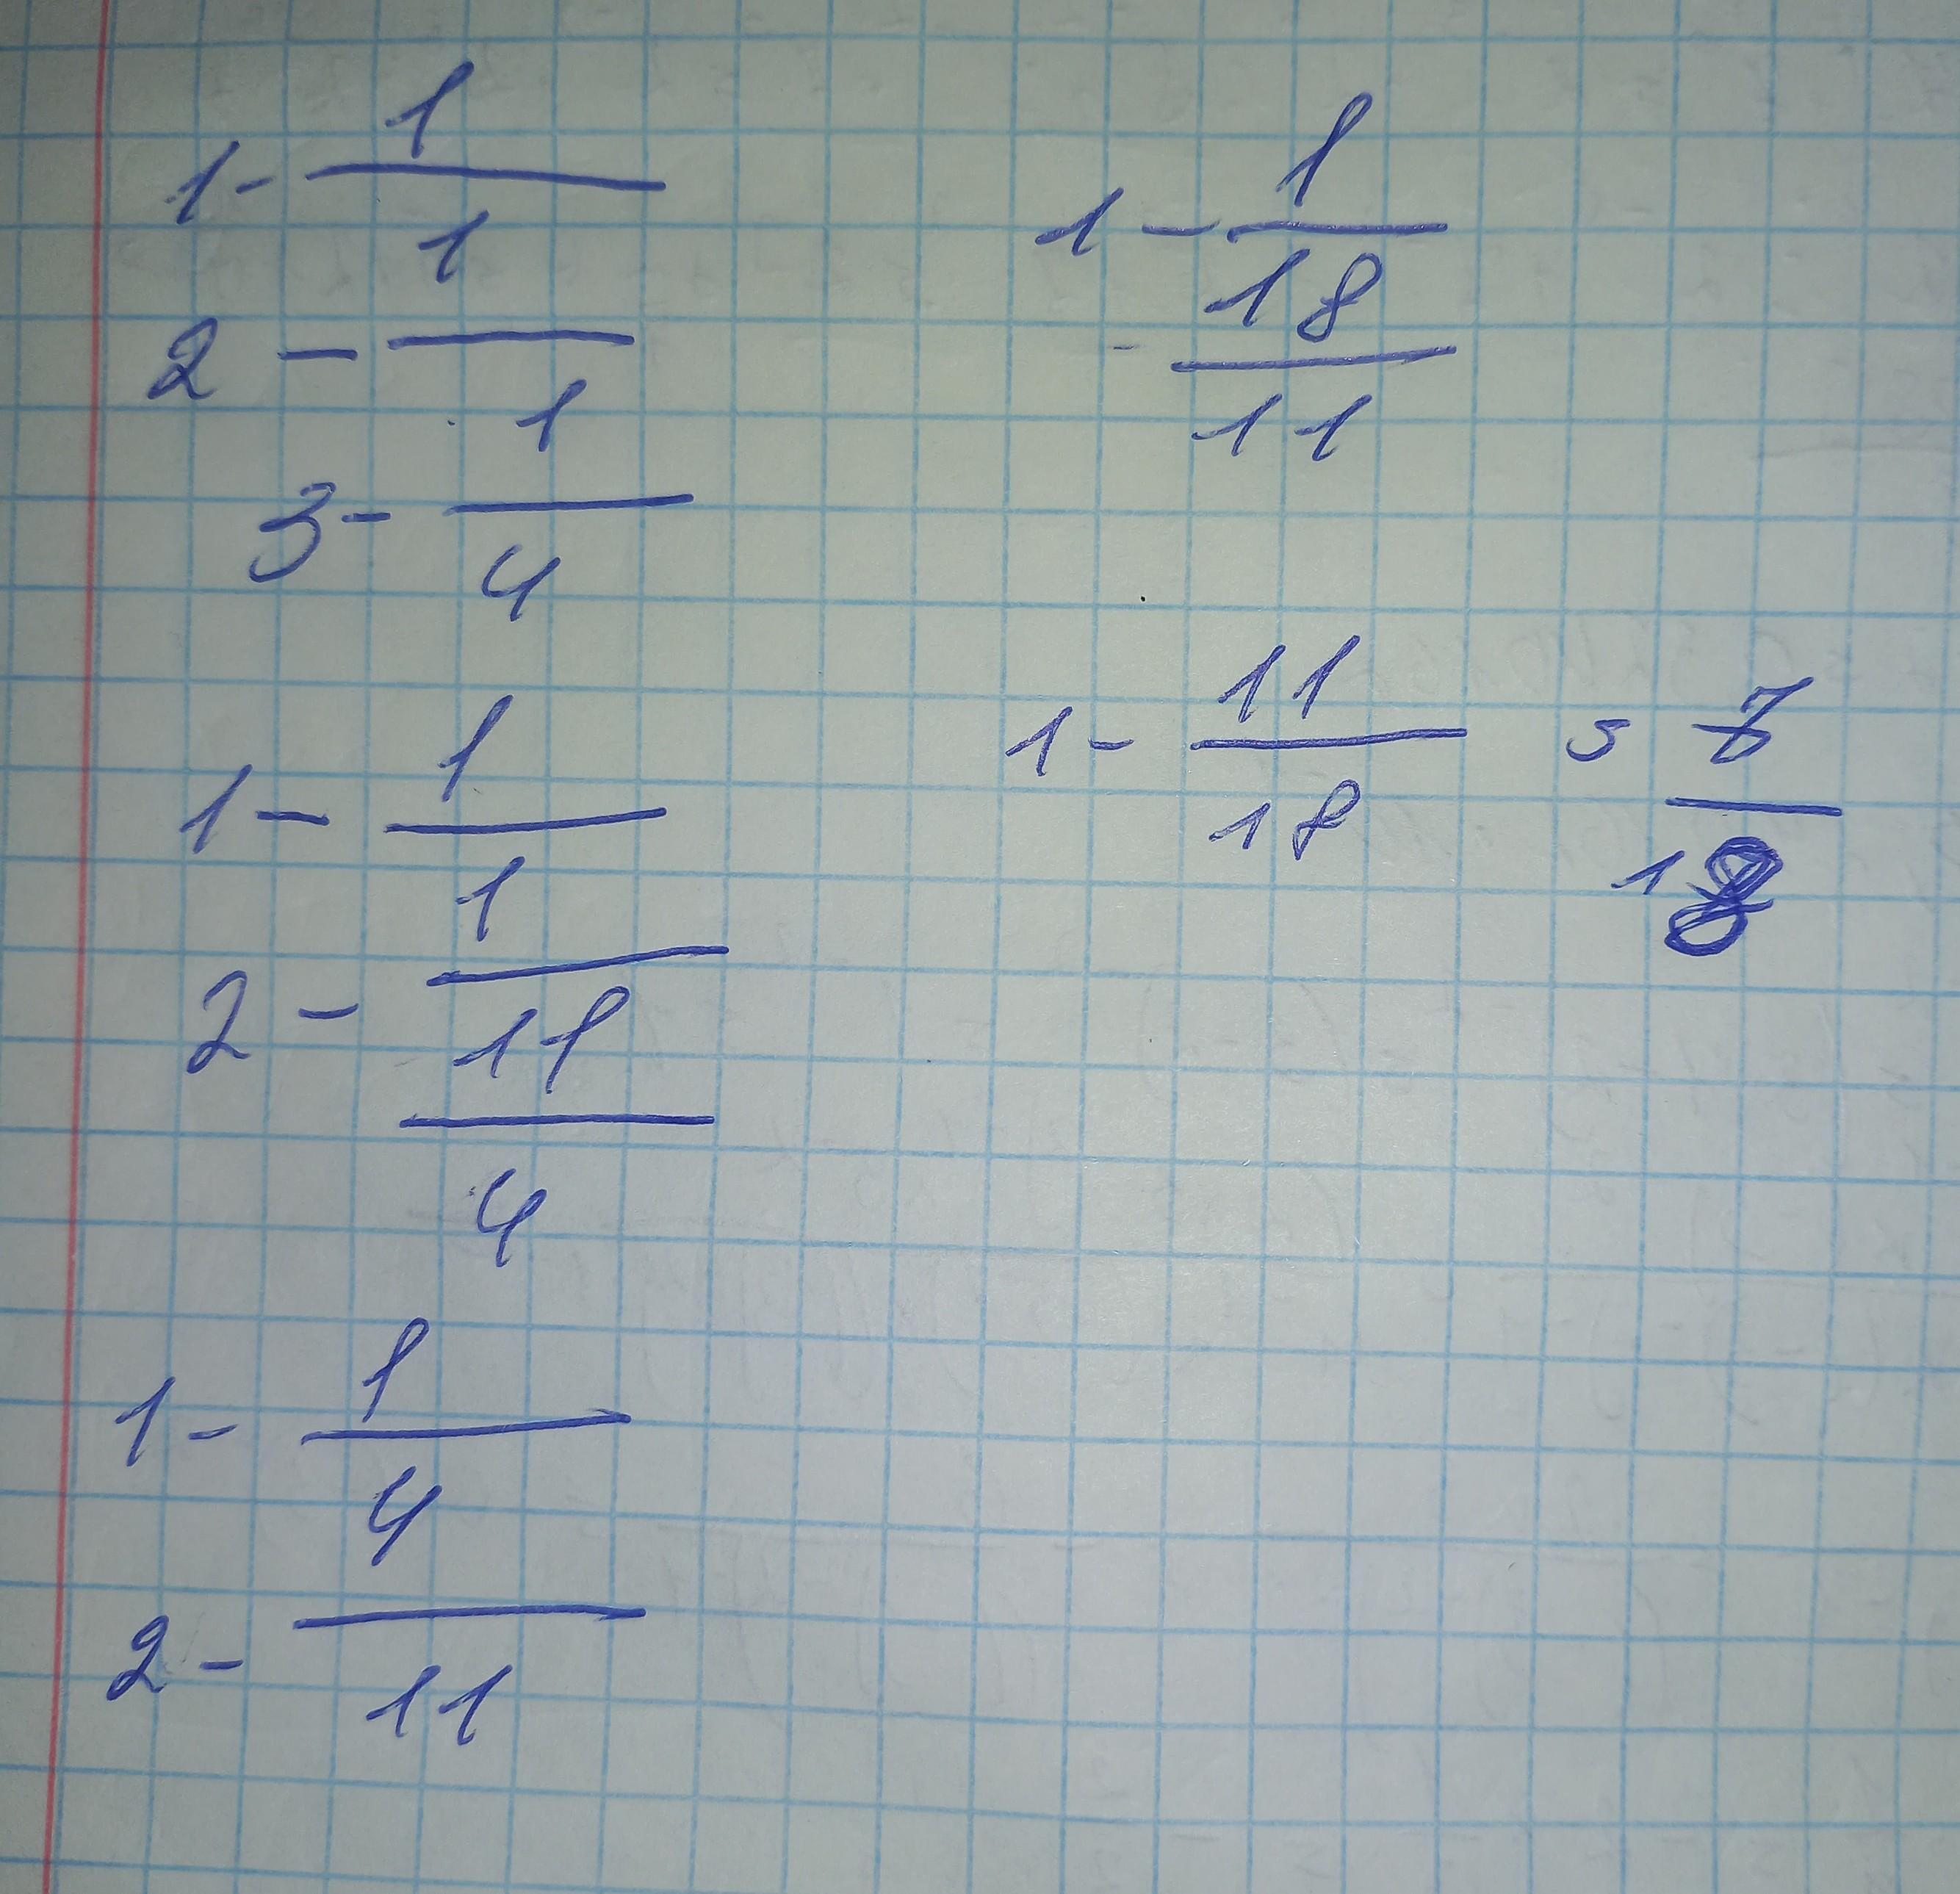 1 - 1
1
2 -
1
3 -
4
1 - 1
1
2 -
11
4
1 - 1
4
2 -
11
1 - 1
18
-
11
1 - 11 = 7
18 18